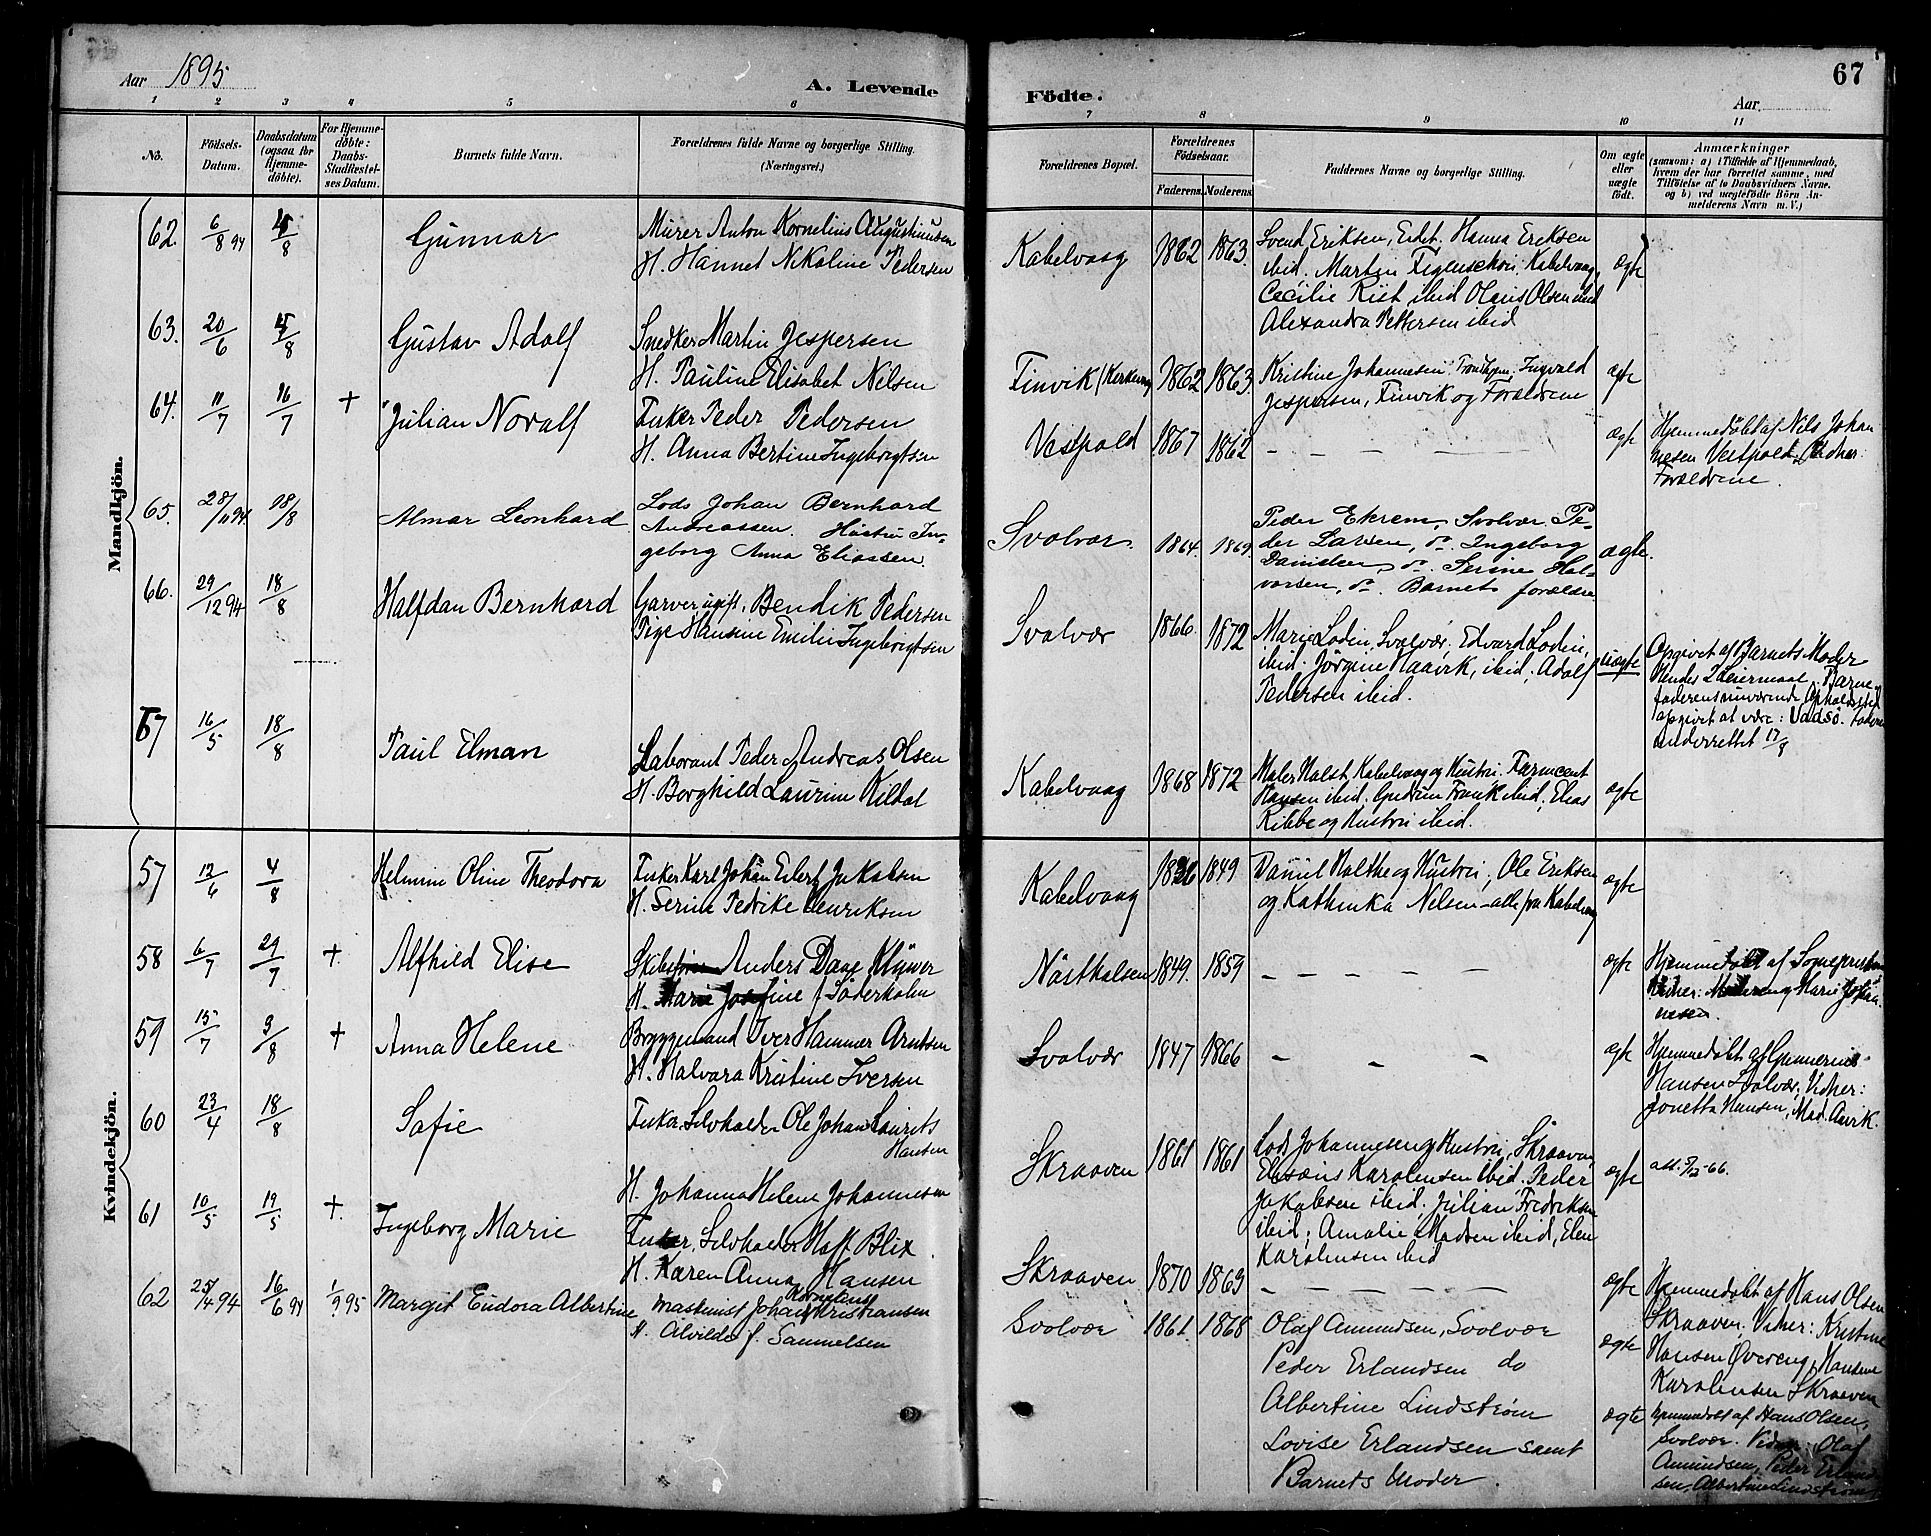 Aar 1895
A. Levende
Födte.
67
Aar
1 2 3 4 5 6 7 8 9 10 11
No.
Födsels-
Datum.
Daabsdatum
(ogsaa for
Hjemme-
døbte).
For Hjemme-
døbte:
Daabs-
Stadfæstel-
ses Datum.
Barnets fulde Navn.
Forældrenes fulde Navne og borgerlige Stilling.
(Næringsvei.)
Forældrenes Bopæl.
Forældrenes
Födselsaar.
Faderens. Moderens.
Faddernes Navne og borgerlige Stilling.
Om ægte
eller
uægte
födt.
Anmærkninger
(saasom: a) i Tilfælde af Hjemmedaab,
hvem der har forrettet samme, med
Tilföielse af to Daabsvidners Navne,
og b) ved uægtefödte Börn An-
melderens Navn m. V.)
Mandkjön.
62. 6/8 94 4/8 Gunnar
Murer Anton Kornelius Augustinusen
H. Hannet Nikoline Pedersen
Kabelvaag 1862 1863.
Svend Eriksen, Hanna Eriksen
ibid. Martin Kabelvaag,
Cecilie Riit ibid Olaus Olsen ibid
Alexandra Pettersen ibid
ægte
63. 20/6 4/8 Gustav Adolf
Snedker Martin Jespersen
H. Pauline Elisabet Nilsen
Finvik (Kirkevaag) 1862 1863.
Kristine Johannesen, Ingvald
Jespersen, Finvik og Forældrene
ægte
64. 11/7 16/7 + Julian Noralf
Fisker Peder Pedersen
H. Anna Bertine Ingebrigtsen
Vestpold 1867 1862 – – – –
ægte
Hjemmedøbt af Nils Johan
nesen Vestpold. Vidner:
Forældrene.
65. 28/11 94 18/8 Almar Leonhard
Lods Johan Bernhard
Andreassen. Hustru In-
geborg Anna Eliassen.
Svolvær. 1864. 1869.
Peder Ekrem, Svolvær. Pe-
der Larsen, do. Ingeborg
Danielsen do. Serine Hal-
vorsen, do. Barnets forældre
ægte.
66. 29/12 94 18/8 Halfdan Bernhard
Garver, ugift, Bendik Pedersen
Pige Hansine Emilie Ingebrigtsen
Svolvær 1866. 1872
Marie Lodin, Svolvær, Edvard Lodin,
ibid. Jörgine Naavik, ibid, Adolf
Pedersen ibid.
uægte
Opgivet af Barnets Moder
Hendes 2 Leiermaal. Barne
faderens nuværende Opholdssted
opgivet at være: Vadsö.
underrettet 17/8
67 16/5 18/8 Paul Elman
Laborant Peder Andreas Olsen
H. Borghild Laurine Kildal
Kabelvaag 1868 1872
Maler Holst, Kabelvaag og Hustru.
Hansen ibid. Gudrun Frank ibid. Elias
Ribbe og Hustru ibid.
ægte
Kvindekjön.
57 12/6 4/8 Helmine Oline Theodora
Fisker Karl Johan Edert Jakobsen
H. Serine Pedrike Henriksen
Kabelvaag 1836 1849
Daniel Holthe og Hustru, Ole Eriksen
og Kathinka Nelsen – alle fra Kabelvaag
ægte
58 6/7 29/7 + Alfhild Elise
Skibsfører Anders Daae Klüwer
H. Marie Josefine f. Söderholm
Nöstholsen 1849. 1859 – – – – –
ægte
Hjemmedøbt af Sognepresten
Vidner: Moderen og Marie Johan
nesen.
59 15/7 3/8 + Anna Helene
Bryggemand Iver Hammer Arntsen
H. Halvara Kristine Iversen
Svolvær 1847 1866 – – –
ægte
Hjemmedøbt af Gunnerius
Hansen Svolvær, Vidner:
Jonetta Hansen, Mad. Aavik.
60 23/4 18/8 Safie
Fisker, Selvholder Ole Johan Laurits
Hansen
H. Johanna Helene Johannesen
Skraaven 1861 1861
Lods Johannesen og Hustru, Skraaven,
Elisæus Karolensen ibid. Peder
Jakobsen ibid. Julian Fredriksen
ibid; Amalie Madsen ibid, Elen
Karolensen ibid
ægte
61 10/5 19/5 +. Ingeborg Marie
Fisker, Selvholder Hoff Blix
H. Karen Anna Hansen
Skraaven 1870 1869 – – – – –
ægte
Hjemmedøbt af Hans Olsen
Skraaven. Vidner: Kristine
Hansen Øvereng, Hansine
Karolensen Skraaven
62 25/4 94 16/6 94 1/9 95 Margit Eudora Albertine
Maskinist Johan Kornelius Kristiansen
H. Alvilde f. Sammelsen
Svolvær 1861. 1868
Olaf Amundsen, Svolvær
Peder Erlandsen do
Albertine Lindstrøm
Lovise Erlandsen samt
Barnets Moder.
ægte
ægte
hjemmedøbt af Hans Olsen,
Svolvær. Vidner: Olaf
Amundsen, Peder Erland
sen, Albertine Lindstrøm